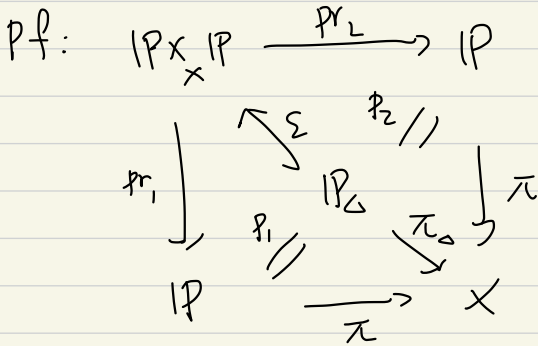 Pf: ℙ ×_X ℙ pr₂ ℙ
ε p₂ //
pr₁ ℙ_Δ π
p₁ // π_Δ
ℙ π X